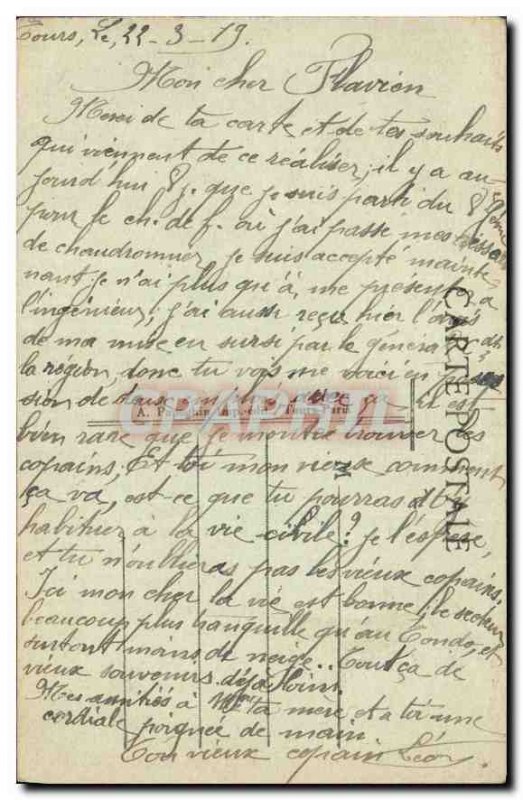 Tours, Le, 22-3-19.
Mon cher Flavien
Merci de ta carte et de tes souhaits
qui viennent de ce réaliser, il y a au-
jourd'hui 8 j. que je suis parti du 8
pour le ch. de f. où j'ai passé mes essais
de chaudronnier, je suis accepté mainte
nant je n'ai plus qu'à me présenter a
l'ingénieur, j'ai aussi reçu hier l'avis
de ma mise en sursis par le général de
la région, donc tu vois me voici en
sion de tous Il est
bien rare que je trouver ces
copains, Et toi mon vieux comment
ça va, est-ce que tu pourras
habituer à la vie civile? je l'espère,
et tu n'oublieras pas les vieux copains.
Ici mon cher la vie est bonne, le secteur
beaucoup plus tranquille qu'au Tondo, et
surtout moins de neige.. Tout ça de
vieux souvenirs déjà loins.
Mes amitiés à Me ta mère et a toi une
cordiale poignée de main.
Ton vieux copain Léon.
CARTE POSTALE
A. Papeghin, Imp.-édit. Tours-Paris
CARTAPHIL